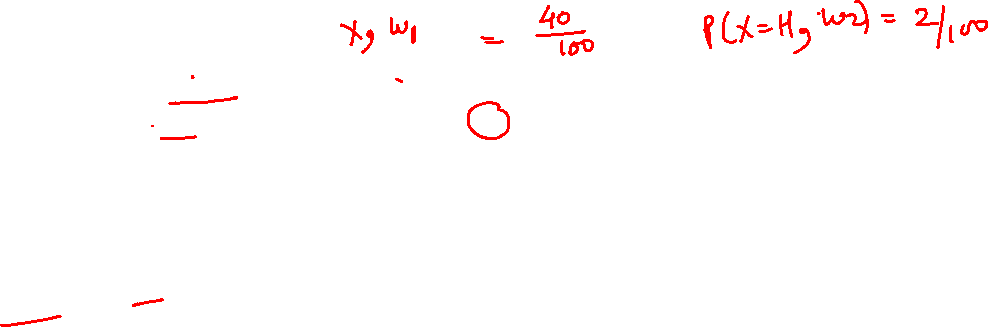 x, w1 = 40/100 P(X=H, w2) = 2/100